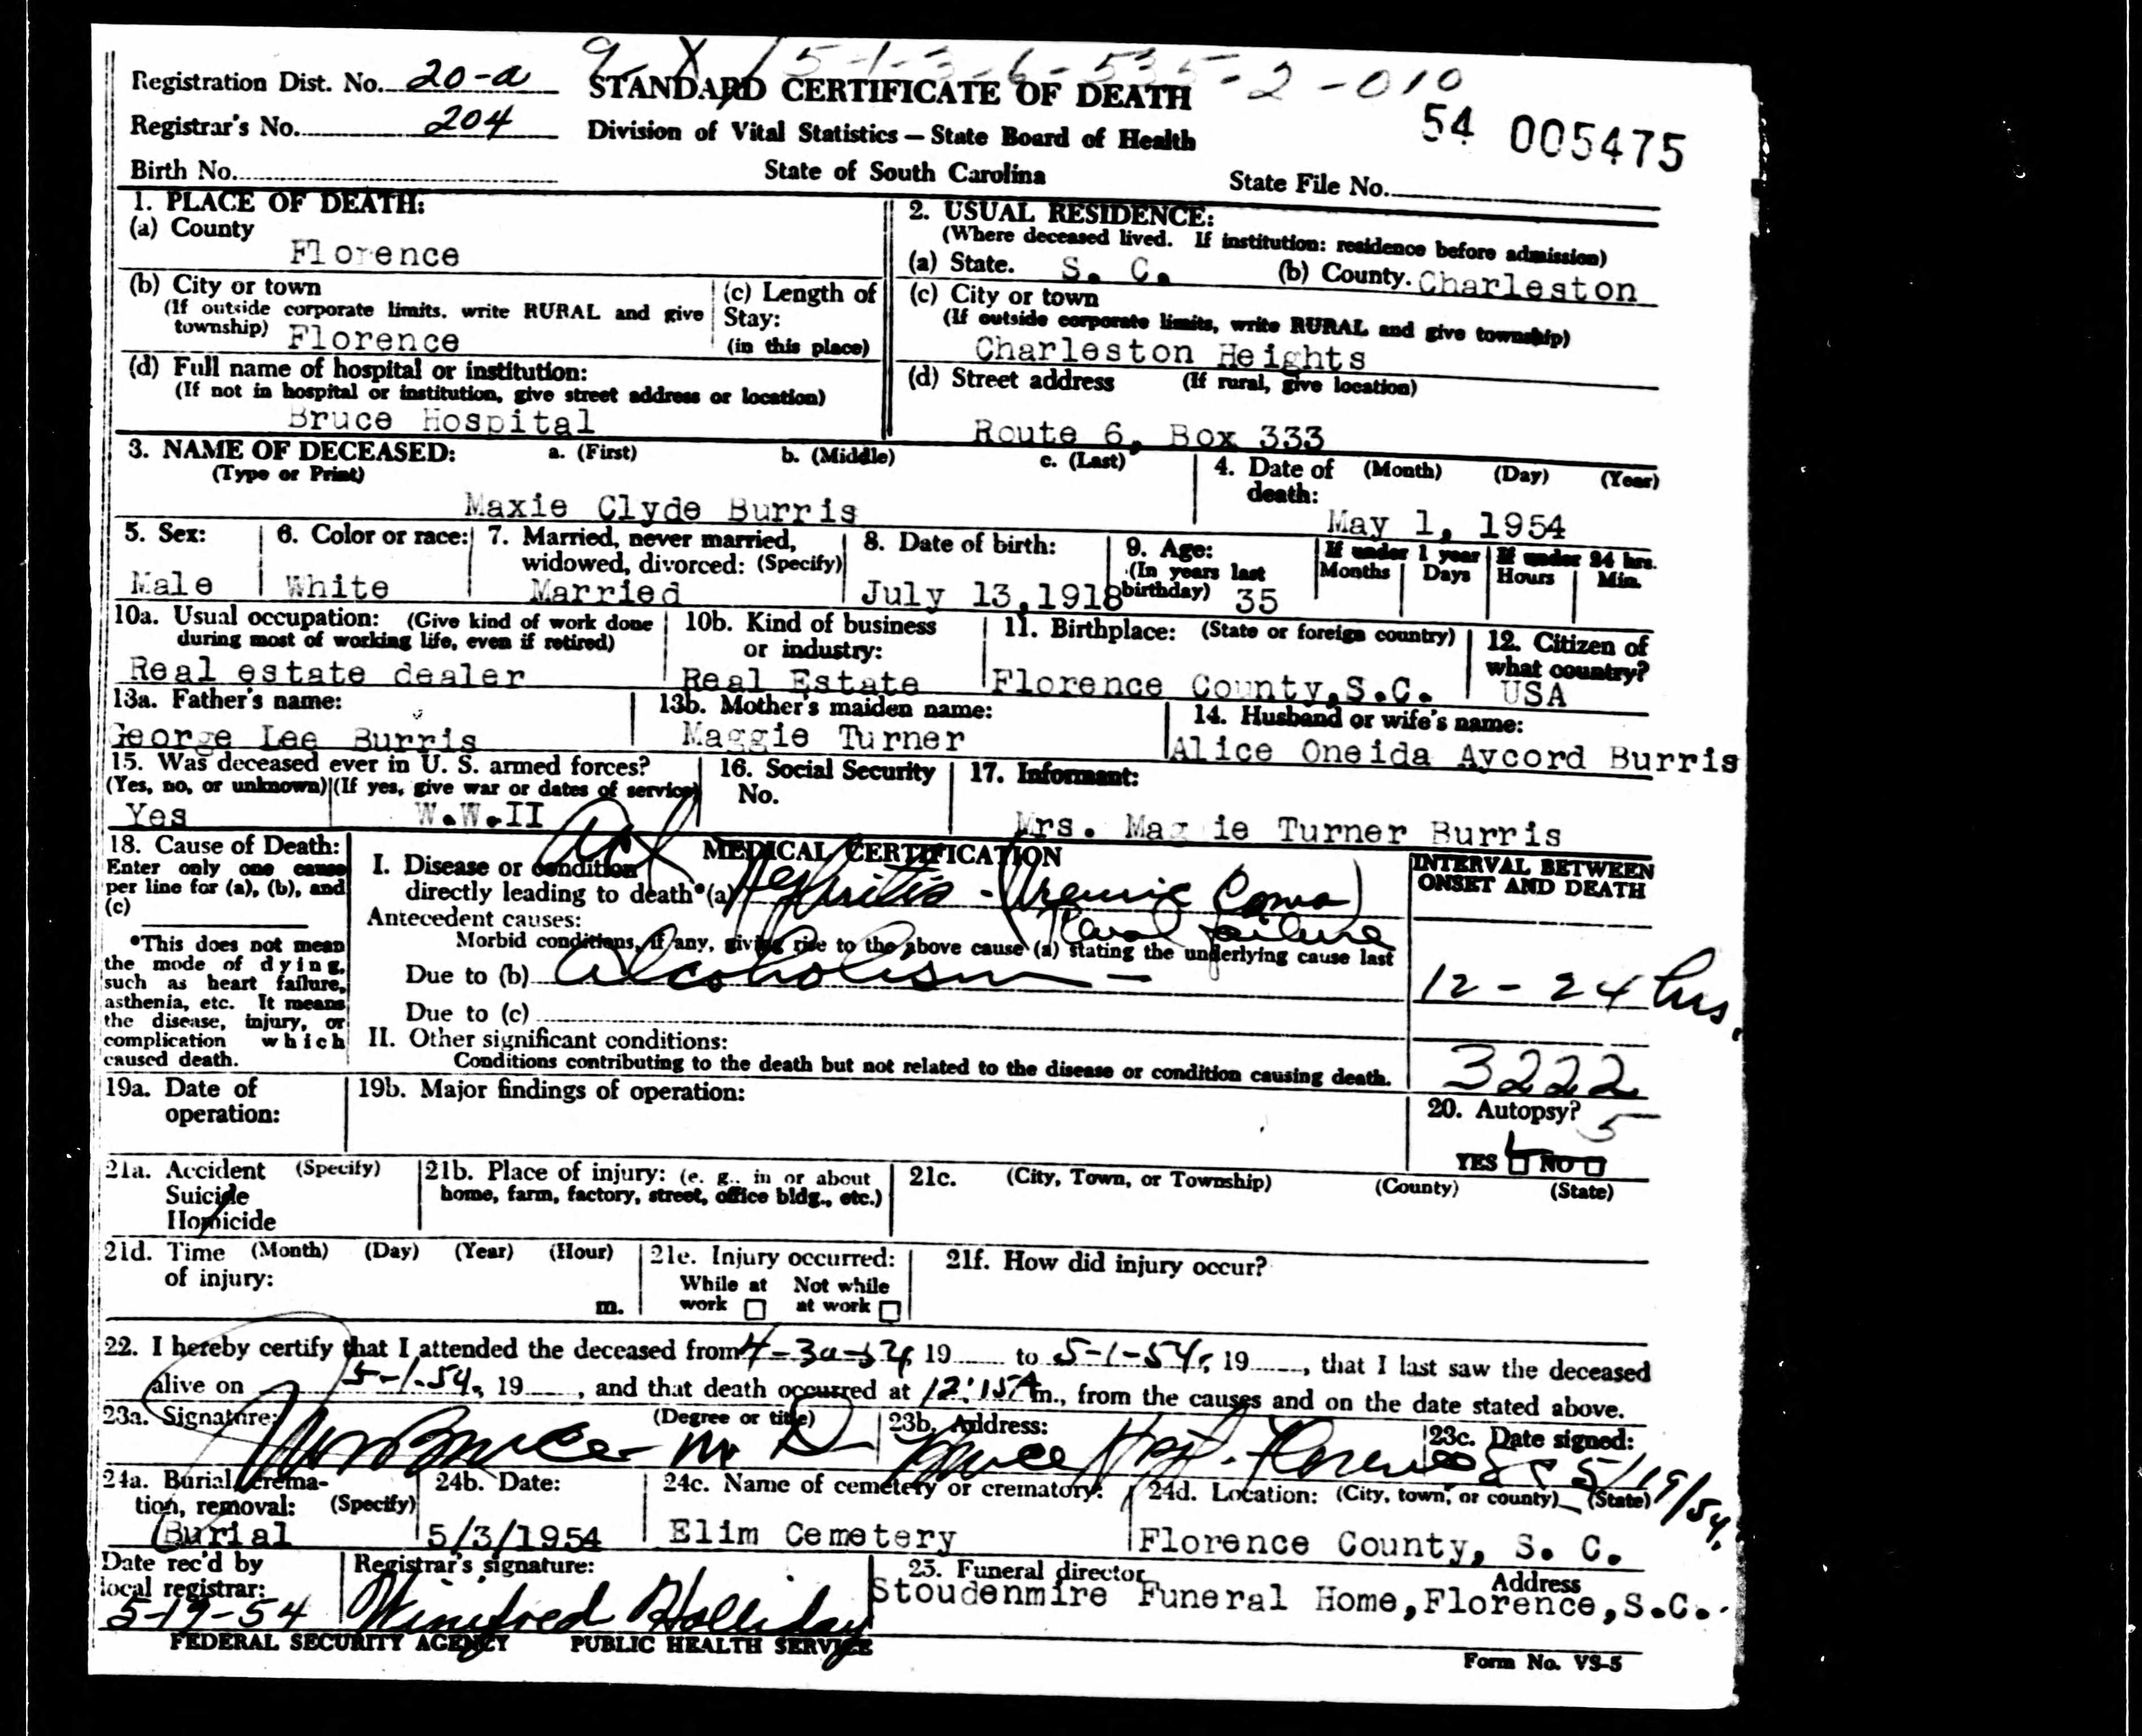 9-X 15-1-3-6-535-2-010
Registration Dist. No. 20-a STANDARD CERTIFICATE OF DEATH
54 005475
Registrar's No. 204 Division of Vital Statistics — State Board of Health
Birth No. State of South Carolina State File No.
1. PLACE OF DEATH:
(a) County
Florence
(b) City or town
(If outside corporate limits, write RURAL and give township)
Florence
(c) Length of Stay:
(in this place)
(d) Full name of hospital or institution:
(If not in hospital or institution, give street address or location)
Bruce Hospital
2. USUAL RESIDENCE:
(Where deceased lived. If institution: residence before admission)
(a) State. S. C. (b) County. Charleston
(c) City or town
(If outside corporate limits, write RURAL and give township)
Charleston Heights
(d) Street address (If rural, give location)
Route 6, Box 333
3. NAME OF DECEASED: a. (First) b. (Middle) c. (Last)
(Type or Print)
Maxie Clyde Burris
4. Date of death: (Month) (Day) (Year)
May 1, 1954
5. Sex:
Male
6. Color or race:
White
7. Married, never married, widowed, divorced: (Specify)
Married
8. Date of birth:
July 13,1918
9. Age:
(In years last birthday) 35
If under 1 year
Months Days
If under 24 hrs.
Hours Min.
10a. Usual occupation: (Give kind of work done during most of working life, even if retired)
Real estate dealer
10b. Kind of business or industry:
Real Estate
11. Birthplace: (State or foreign country)
Florence County,S.C.
12. Citizen of what country?
USA
13a. Father's name:
George Lee Burris
13b. Mother's maiden name:
Maggie Turner
14. Husband or wife's name:
Alice Oneida Aycord Burris
15. Was deceased ever in U. S. armed forces?
(Yes, no, or unknown) (If yes, give war or dates of service)
Yes W.W.II
16. Social Security No.
17. Informant:
Mrs. Maggie Turner Burris
18. Cause of Death:
Enter only one cause per line for (a), (b), and (c)
*This does not mean the mode of dying, such as heart failure, asthenia, etc. It means the disease, injury, or complication which caused death.
MEDICAL CERTIFICATION
I. Disease or condition
directly leading to death*(a) Nephritis - (Uremic Coma)
Renal failure
Antecedent causes:
Morbid conditions, if any, giving rise to the above cause (a) stating the underlying cause last
Due to (b) Alcoholism —
Due to (c)
II. Other significant conditions:
Conditions contributing to the death but not related to the disease or condition causing death.
INTERVAL BETWEEN ONSET AND DEATH
12 - 24 hrs.
3222
19a. Date of operation:
19b. Major findings of operation:
20. Autopsy? 5
YES NO
21a. Accident (Specify)
Suicide
Homicide
21b. Place of injury: (e. g., in or about home, farm, factory, street, office bldg., etc.)
21c. (City, Town, or Township) (County) (State)
21d. Time (Month) (Day) (Year) (Hour)
of injury: m.
21e. Injury occurred:
While at work Not while at work
21f. How did injury occur?
22. I hereby certify that I attended the deceased from 4-30-54, 19 to 5-1-54, 19, that I last saw the deceased
alive on 5-1-54, 19, and that death occurred at 12:15 A m., from the causes and on the date stated above.
23a. Signature: (Degree or title)
Bruce M D
23b. Address:
Bruce Hosp. Florence S C
23c. Date signed:
5/19/54.
24a. Burial, cremation, removal: (Specify)
Burial
24b. Date:
5/3/1954
24c. Name of cemetery or crematory:
Elim Cemetery
24d. Location: (City, town, or county) (State)
Florence County, S. C.
Date rec'd by local registrar:
5-19-54
Registrar's signature:
Winifred Holliday
25. Funeral director Address
Stoudenmire Funeral Home,Florence,S.C.
FEDERAL SECURITY AGENCY PUBLIC HEALTH SERVICE
Form No. VS-5